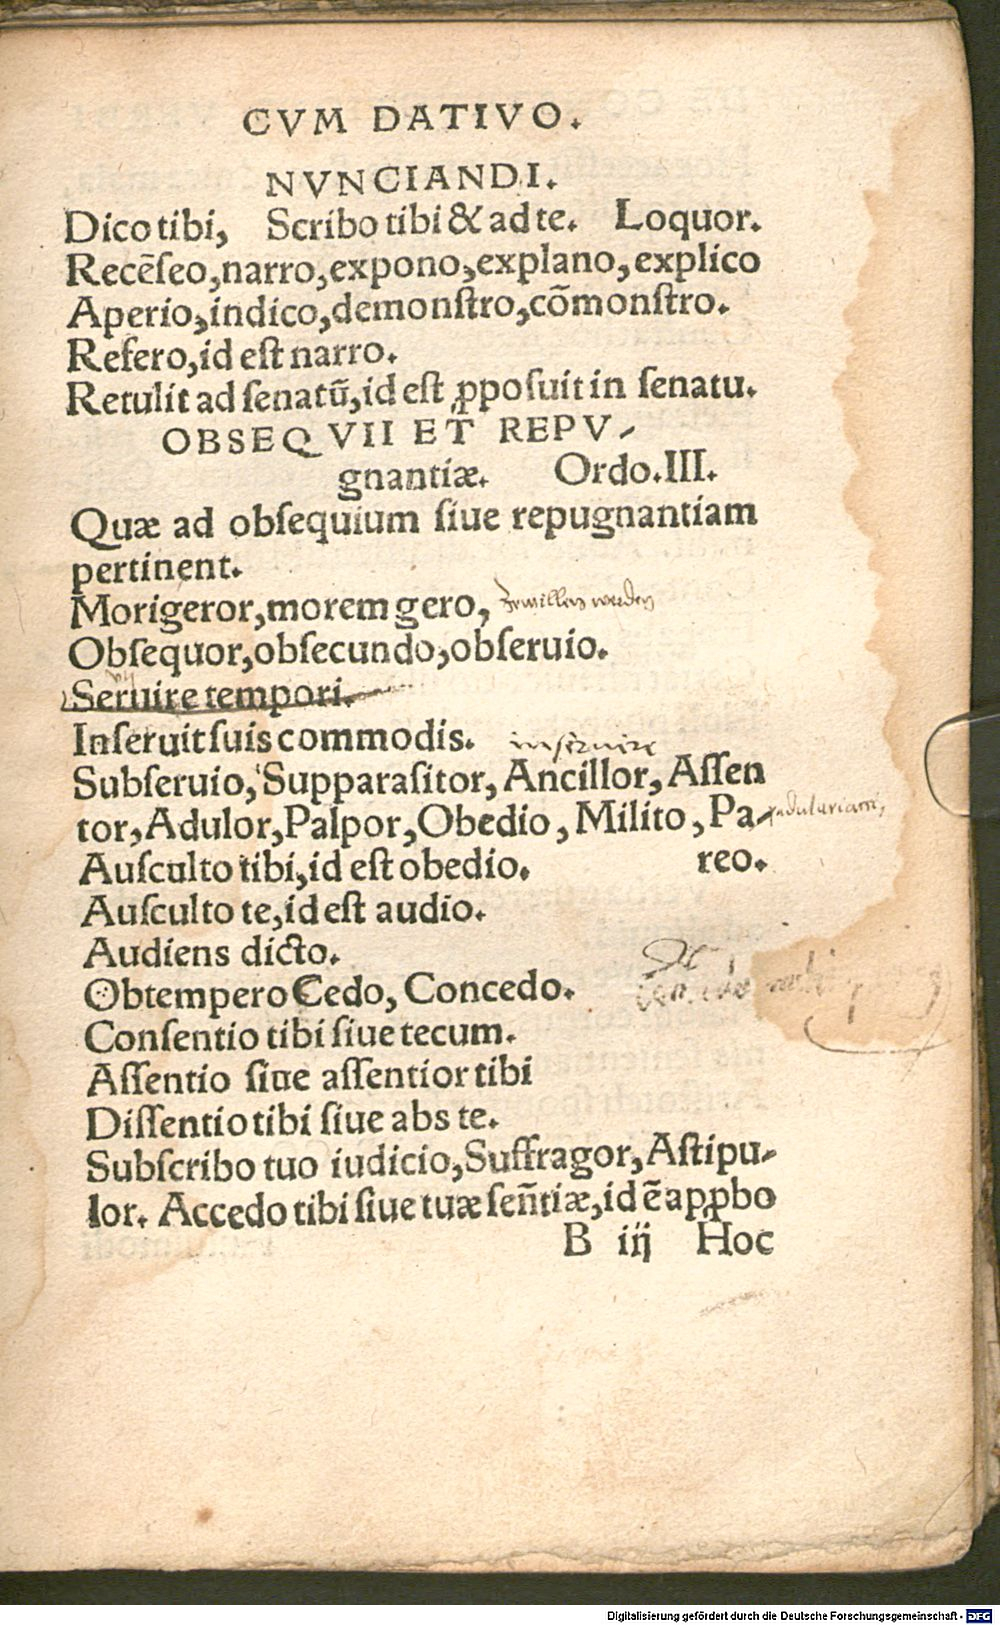 CVM DATIVO.
NVNCIANDI.
Dico tibi, Scribo tibi & ad te. Loquor.
Recẽſeo, narro, expono, explano, explico
Aperio, indico, demonſtro, cõmonſtro.
Refero, id eſt narro.
Retulit ad ſenatũ, id eſt ꝓpoſuit in ſenatu.
OBSEQVII ET REPV-
gnantiæ. Ordo.III.
Quæ ad obſequium ſiue repugnantiam
pertinent.
Morigeror, morem gero, zewillen werden
Obſequor, obſecundo, obſeruio.
Seruire tempori.
Inſeruit ſuis commodis. inſeruire
Subſeruio, Supparaſitor, Ancillor, Aſſen
tor, Adulor, Palpor, Obedio, Milito, Pa-
Auſculto tibi, id eſt obedio. reo.
Auſculto te, id eſt audio.
Audiens dicto.
Obtempero Cedo, Concedo.
Conſentio tibi ſiue tecum.
Aſſentio ſiue aſſentior tibi
Diſſentio tibi ſiue abs te.
Subſcribo tuo iudicio, Suffragor, Aſtipu-
lor. Accedo tibi ſiue tuæ ſeñtiæ, id ẽ apꝓbo
B iij Hoc
Digitalisierung gefördert durch die Deutsche Forschungsgemeinschaft - DFG